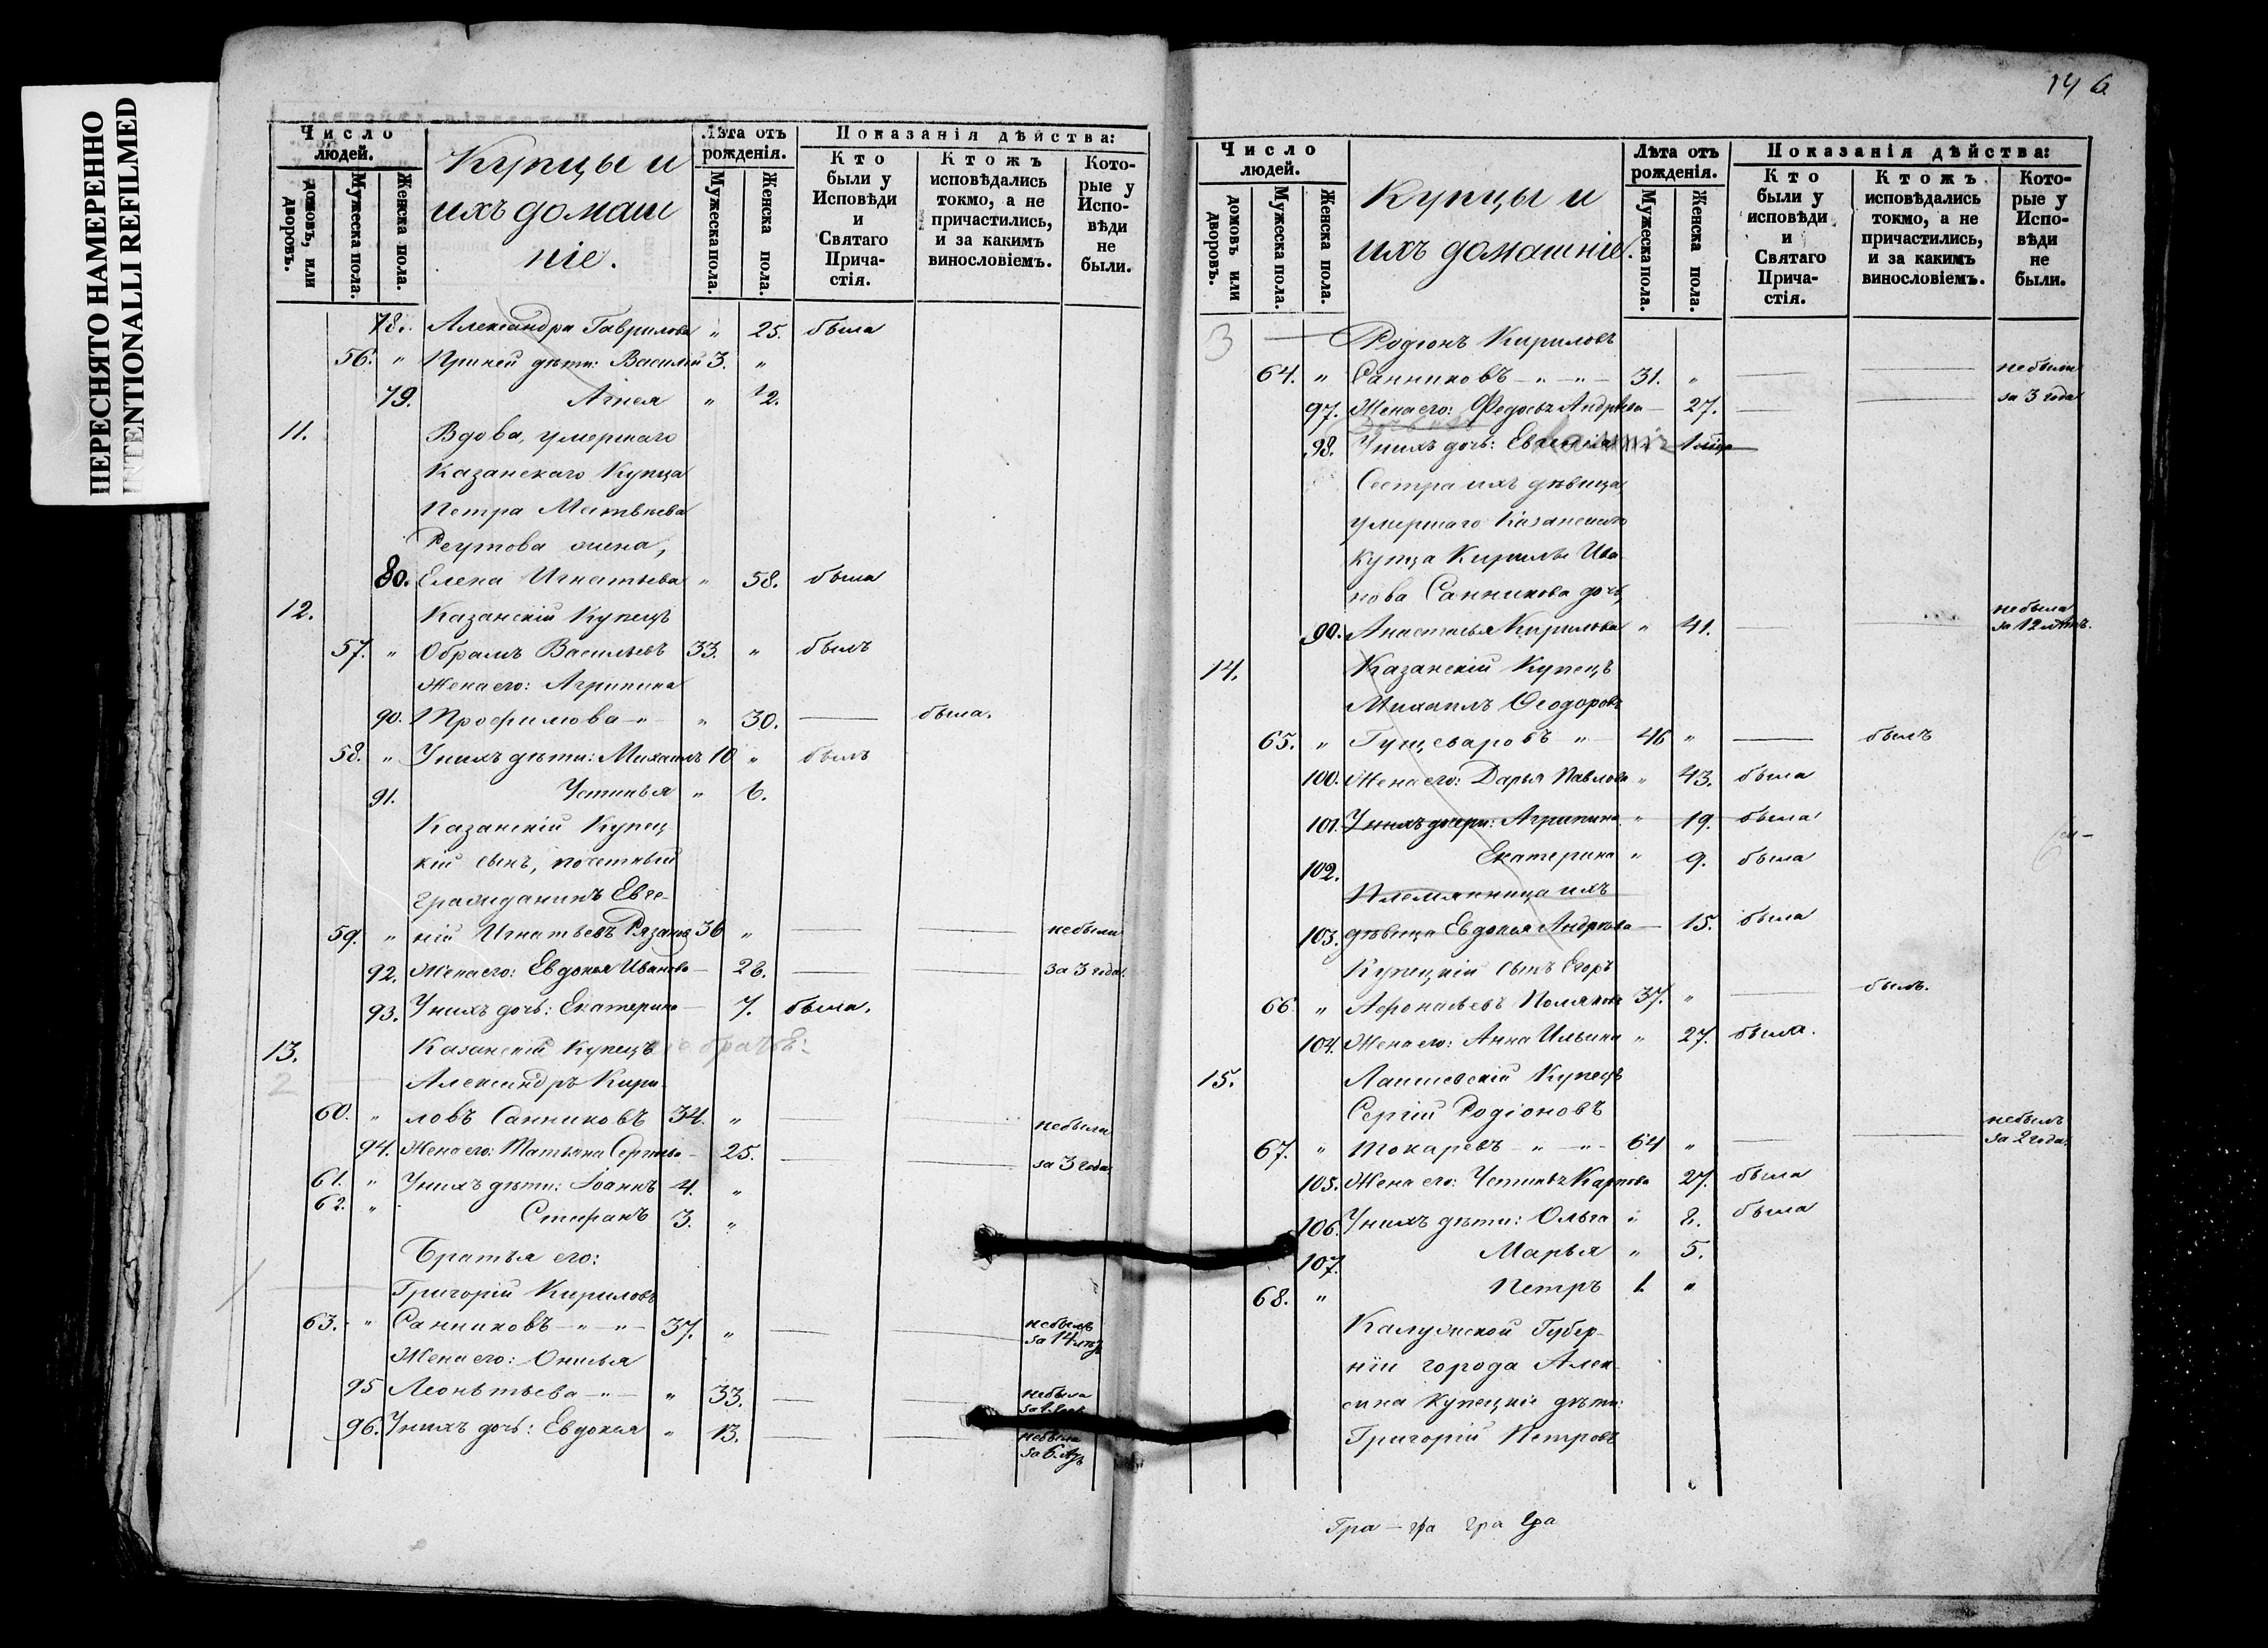 ПЕРЕСНЯТО НАМЕРЕННО
INTENTIONALLI REFILMED
Число людей.
домовъ, или дворовъ.
Мужеска пола.
Женска пола.
Купцы и
ихъ домаш
ніе.
Лѣта отъ рожденія.
Мужеска пола.
Женска пола.
Показанія дѣйства:
Кто были у Исповѣди и Святаго Прича-стія.
Ктожъ исповѣдались токмо, а не причастились, и за какимъ винословіемъ.
Кото-рые у Испо-вѣди не были.
78. Александра Гаврилова „ 25. была
56. „ При ней дѣти: Василій 3. „
79. Агнея „ ½.
11. Вдова, умершаго
Казанскаго Купца
Петра Матвѣева
Реутова жена,
80. Елена Игнатьева „ 58. была
12. Казанскій Купецъ
57. „ Обрамъ Васильевъ 33. „ былъ
Жена его: Агрипина
90. Трофимова -„- „ 30. — была.
58. „ У нихъ дѣти: Михаилъ 10 „ былъ
91. Устинья „ 6.
Казанскій Купец
кій сынъ, почетный
гражданинъ Евге-
59. „ ній Игнатьевъ 36 „ — — небыли
92. Жена его: Евдокья Иванова — 26. — за 3 года.
93. У нихъ дочь: Екатерина — 7. была.
13. Казанскій Купецъ
2 Александръ Кири-
60. „ ловъ Санниковъ 34. „ — — небыли
94. Жена его: Татьяна — 25. — — за 3 года.
61. „ У нихъ дѣти: Іоаннъ 4. „
62. „ Стефанъ 3. „
Братья его:
Григорій Кириловъ
63. „ Санниковъ -„-„- 37. „ — — небылъ
за 14 лѣтъ
Жена его:
95 Леонътьева -„- „ 33. — — небыла
96. У нихъ дочь: Евдокья „ 13. — — небыла
за 6 лѣтъ
146
Число людей.
домовъ или дворовъ.
Мужеска пола.
Женска пола.
Купцы и
ихъ домашніе.
Лѣта отъ рожденія.
Мужеска пола.
Женска пола.
Показанія дѣйства:
Кто были у исповѣди и Святаго Прича-стія.
Ктожъ исповѣдались токмо, а не причастились, и за какимъ винословіемъ.
Кото-рые у Испо-вѣди не были.
3 — Родіонъ Кириловъ
64. „ Санниковъ -„-„- 31. „ — — небыли
97. Жена его: Федосья Андрѣева — 27. — — за 3 года
98. У нихъ дочь: 1
Сестра ихъ дѣвица,
умершаго Казанскаго
купца Кирилы Ива-
нова Санникова дочь,
99. Анастасья Кирилова „ 41. — — небыла
за 12 лѣтъ.
14. Казанскій Купецъ
Михаилъ Ѳеодоровъ
65. „ Гущеваровъ „ 46 „ — былъ
100. Жена его: Дарья Павлова „ 43. была
101. У нихъ дочери: Агрипина „ 19. была
102. Екатерина „ 9. была
Племянница ихъ
103. дѣвица Евдокья Андрѣева — 15. была
Купецкій сынъ Егоръ
66 „ Афонасьевъ Поляковъ 37. „ — былъ.
104. Жена его: Анна Ильина „ 27. была.
15. Лаишевскій Купецъ
Сергій Родіоновъ
67. „ Токаревъ -„-„- 64 „ — — небылъ
за 2 года.
105. Жена его: Устинья Карпова 27. была
106. У нихъ дѣти: Ольга „ 8. была
107. Марья „ 5.
68. „ Петръ 1. „
Калужской Губер-
ніи города Алек-
сина купецкіе дѣти:
Григорій Петровъ
Гра — гра гра гра